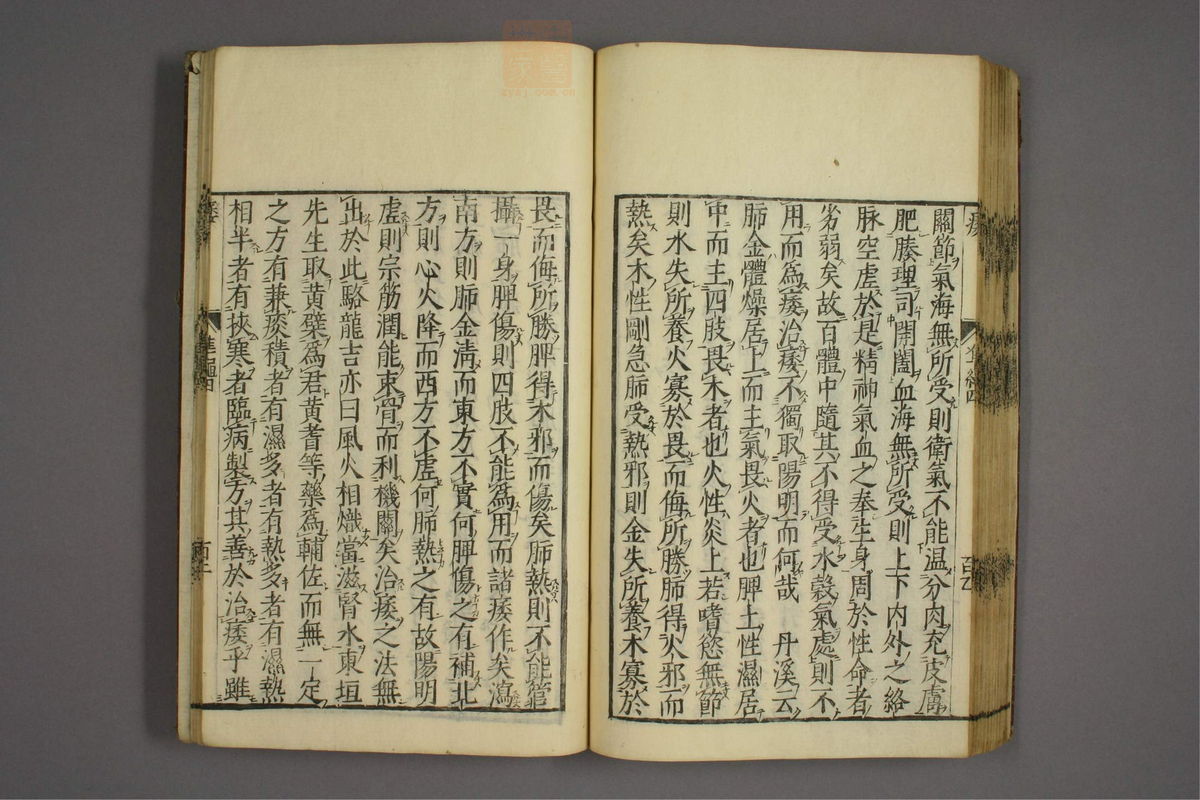 關節氣海無所受則衛氣不能溫分肉充皮膚
肥腠理司開闔血海無所受則上下內外之絡
脉空虛於是精神氣血之奉生身周於性命者
劣弱矣故百體中隨其不得受水穀氣處則不
用而爲痿治痿不獨取陽明而何哉　丹溪云
肺金體燥居上而主氣畏火者也脾土性濕居
中而主四肢畏木者也火性炎上若嗜慾無節
則水失所養火寡於畏而侮所勝肺得火邪而
熱矣木性剛急肺受熱邪則金失所養木寡於
畏而侮所勝脾得木邪而傷矣肺熱則不能管
攝一身脾傷則四肢不能爲用而諸痿作矣瀉
南方則肺金清而東方不實何脾傷之有補北
方則心火降而西方不虛何肺熱之有故陽明
虛則宗筋潤能束骨而利機關矣治痿之法無
出於此駱龍吉亦曰風火相熾當滋腎水東垣
先生取黃蘗爲君黃耆等藥爲輔佐而無一定
之方有兼痰積者有濕多者有熱多者有濕熱
相半者有挾寒者臨病製方其善於治痿乎雖